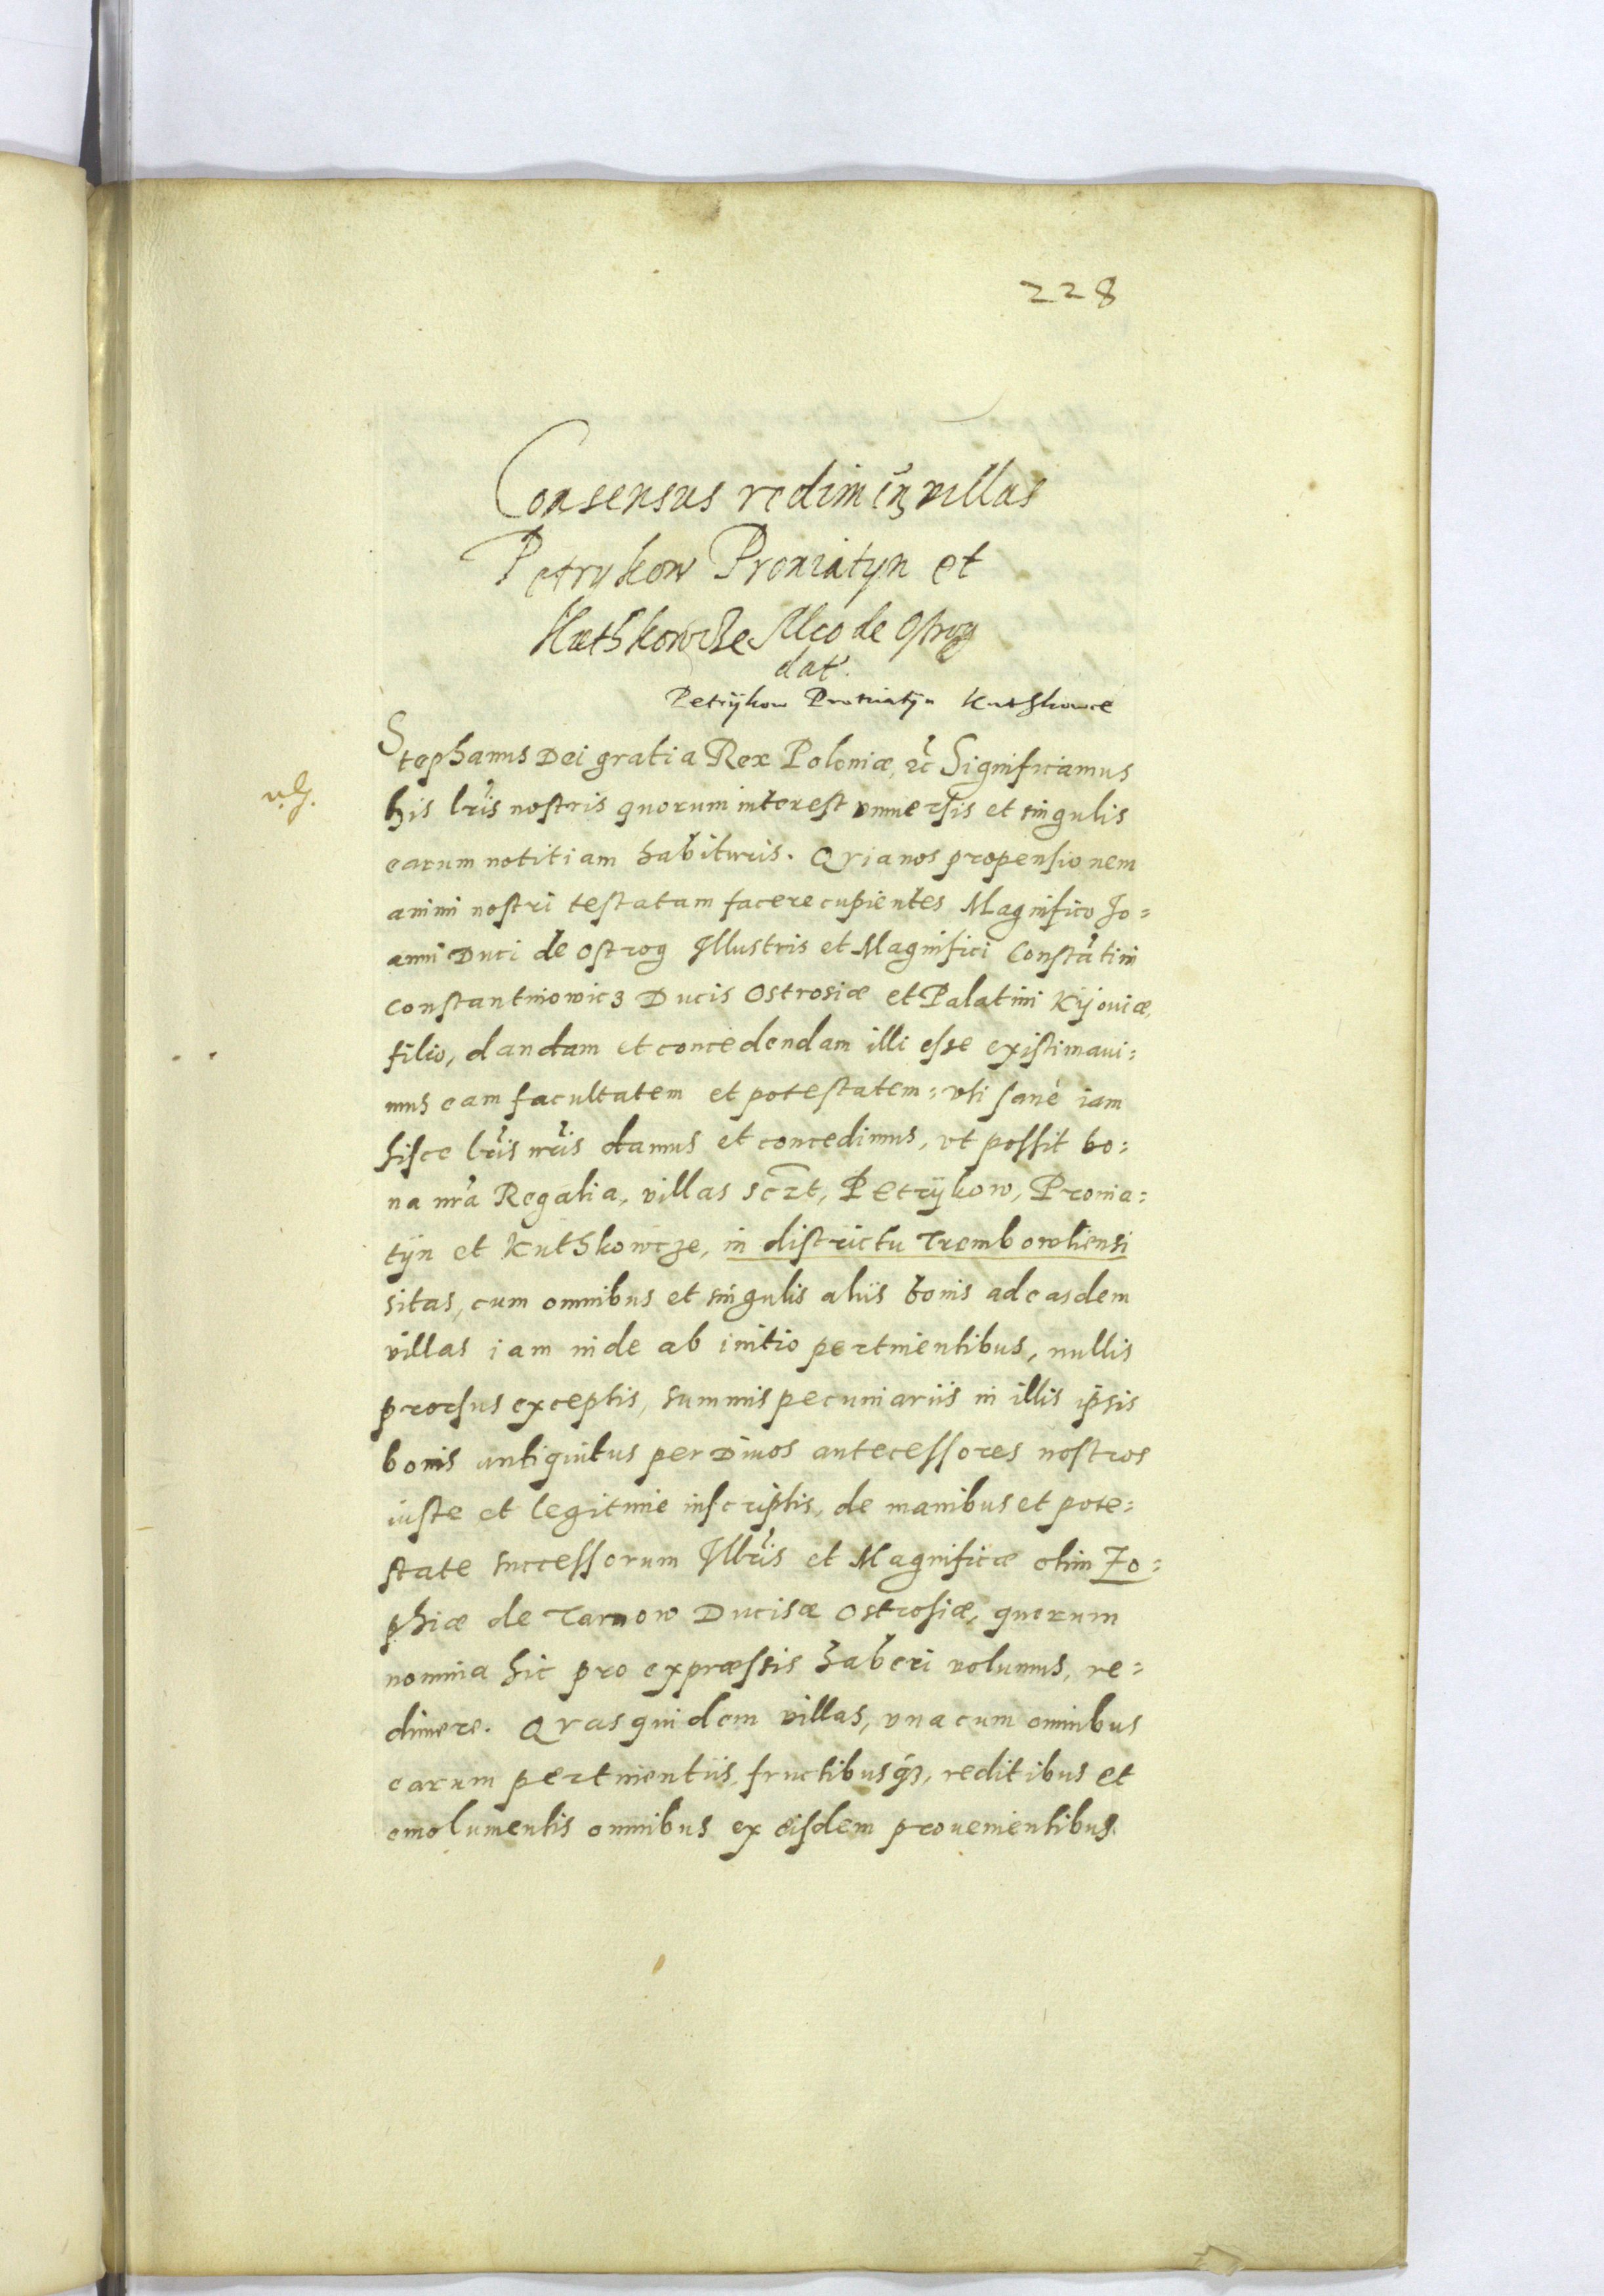 228
Consensus redimen villas
Petrykow Proniatyn et
Kuthkowcze Mco de Ostrog
dat.
Petrÿkow Proniatÿn Kuthkowce
Stephanus Dei gratia Rex Poloniæ, &c Significamus
his lr̃is nostris quorum interest vniuersis et singulis
earum notitiam habituris. Qvia nos propensionem
animi nostri testatam facere cupientes Magnifico Jo=
anni Duci de Ostrog Jllustris et Magnifici Constãtini
Constantinowicz Ducis Ostrosiæ et Palatini Kijouiæ,
filio, dandam et concedendam illi esse existimaui=
mus eam facultatem et potestatem: vti sanè iam
hisce lr̃is nr̃is damus et concedimus, vt possit bo=
na nr̃a Regalia, villas sczt, Petrÿkow, Pronia=
tÿn et Kuthkowcze, in districtu Trembowliensi
sitas, cum omnibus et singulis aliis bonis ad easdem
villas iam inde ab initio pertinentibus, nullis
prorsus exceptis, summis pecuniariis in illis ipsis
bonis antiquitus per Diuos antecessores nostros
iuste et legitime inscriptis, de manibus et pote=
state successorum Jllr̃is et Magnificæ olim Zo=
phiæ de Tarnow Ducisæ Ostrosiæ, quorum
nomina hic pro expræssis haberi volumus, re=
dimere. Qvas quidem villas, vna cum omnibus
earum pertinentiis, fructibusq́3, reditibus et
emolumentis omnibus ex eisdem prouenientibus